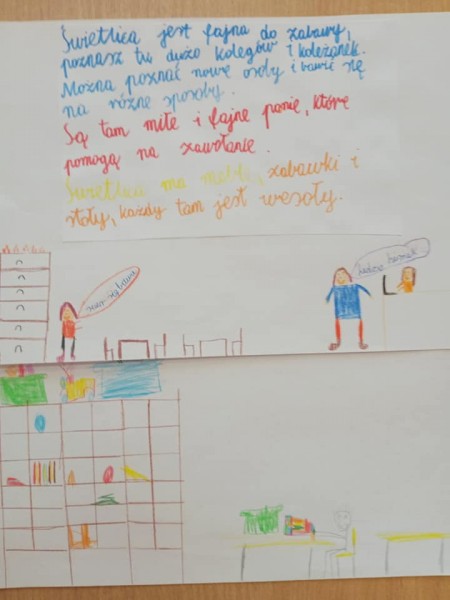 Świetlica jest fajna do zabawy,
poznasz tu dużo kolegów i koleżanek.
Można poznać nowe osoby i bawić się
na różne sposoby.
Są tam miłe i fajne panie, które
pomogą na zawołanie.
Świetlica ma meble, zabawki i
stoły, każdy tam jest wesoły.